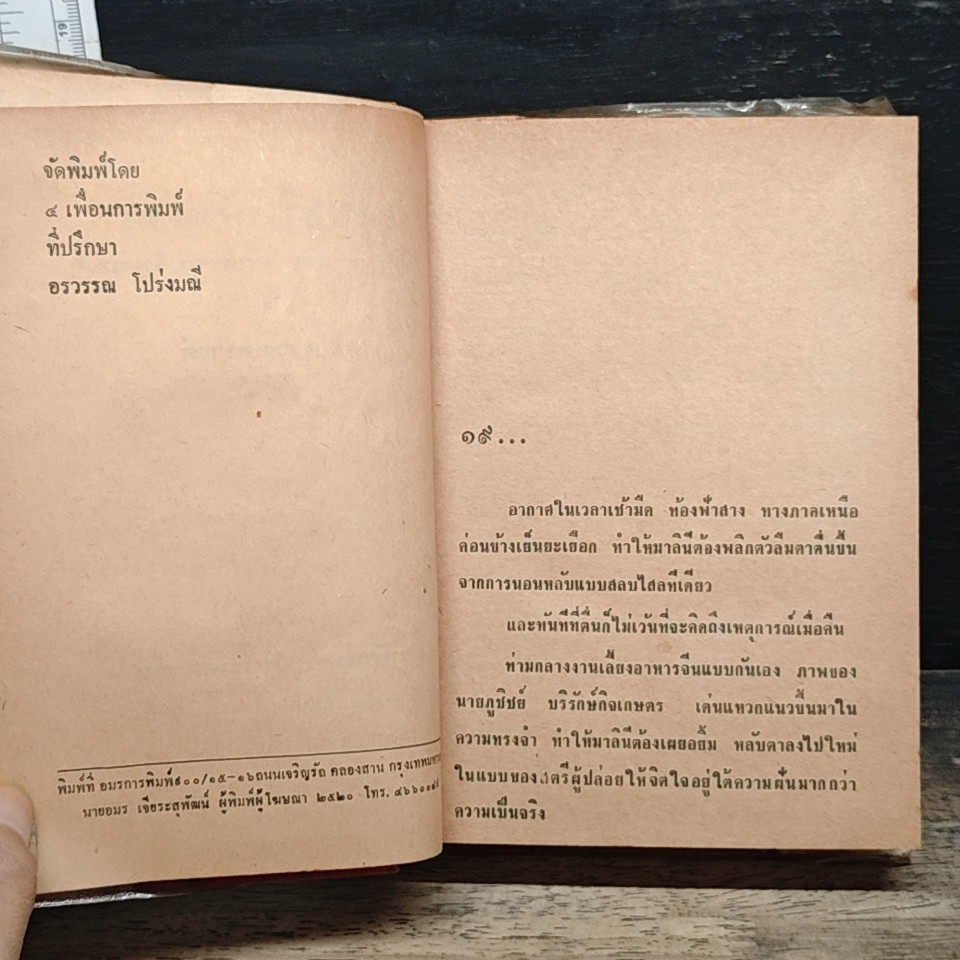 19
จัดพิมพ์โดย
๔ เพื่อนการพิมพ์
ที่ปรึกษา
อรวรรณ โปร่งมณี
พิมพ์ที่ อมรการพิมพ์๙๐๐/๑๕-๑๖ถนนเจริญรัถ คลองสาน
นายอมร เจียระสุพัฒน์ ผู้พิมพ์ผู้โฆษณา ๒๕๒๐ โทร.
๑๙...
อากาศในเวลาเช้ามืด ท้องฟ้าสาง ทางภาคเหนือ
ค่อนข้างเย็นยะเยือก ทำให้มาลินีต้องพลิกตัวลืมตาตื่นขึ้น
จากการนอนหลับแบบสลบไสลทีเดียว
และทันทีที่ตื่นก็ไม่เว้นที่จะคิดถึงเหตุการณ์เมื่อคืน
ท่ามกลางงานเลี้ยงอาหารจีนแบบกันเอง ภาพของ
นายภูชิชย์ บริรักษ์กิจเกษตร เด่นแหวกแนวขึ้นมาใน
ความทรงจำ ทำให้มาลินีต้องเผยอยิ้ม หลับตาลงไปใหม่
ในแบบของสตรีผู้ปล่อยให้จิตใจอยู่ใต้ความฝันมากกว่า
ความเป็นจริง